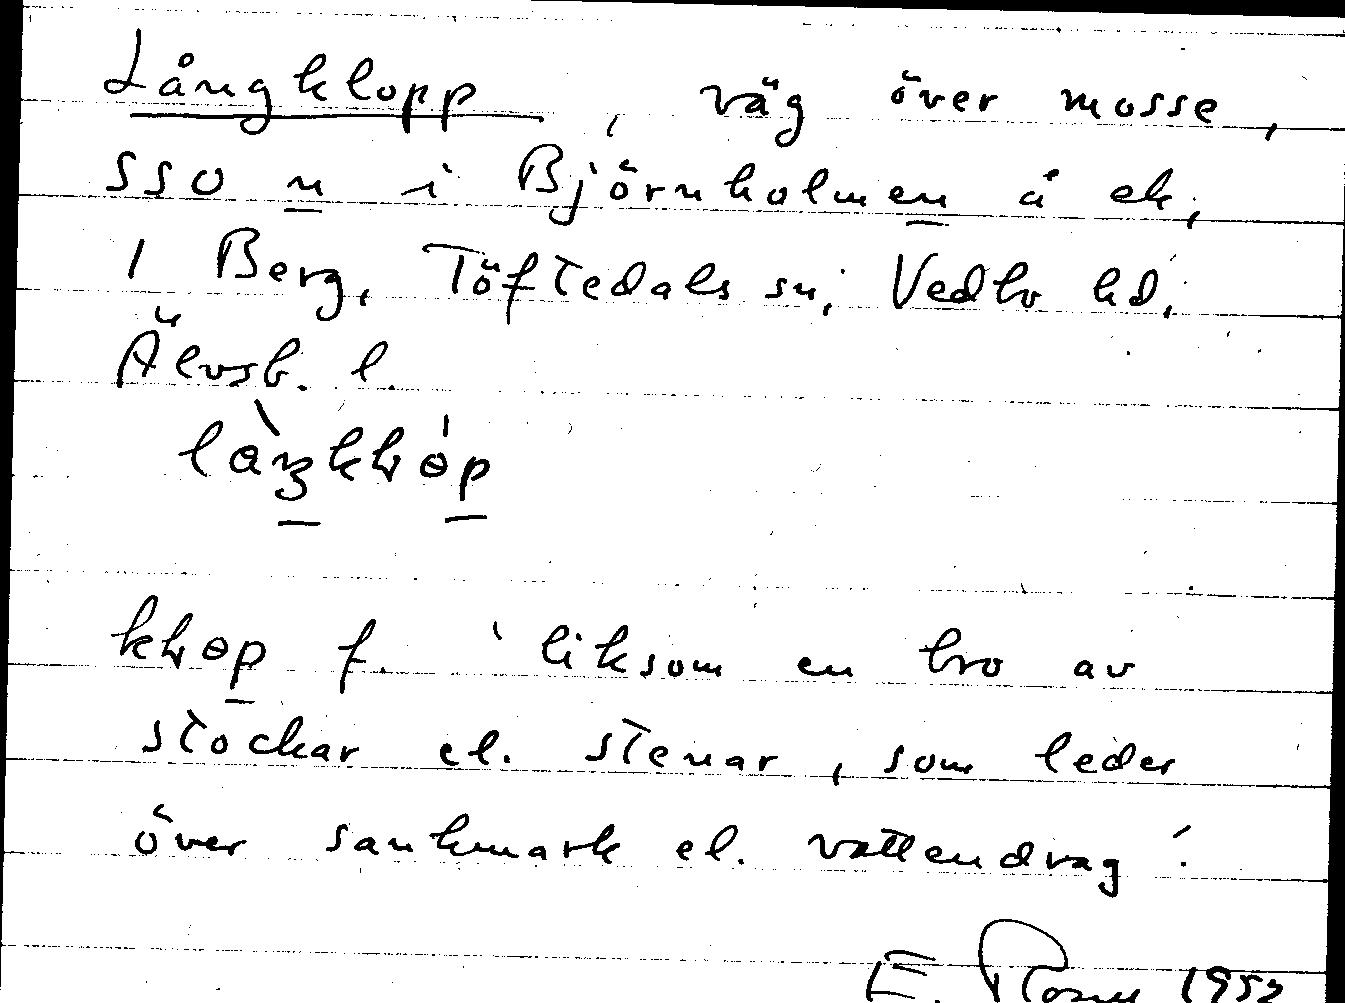 Långklopp, väg över mosse,
SSO n i Björnholmen å ek.
1 Berg, Töftedals sn, Vedbo hd,
Älvsb. l.
klɵp f. ‵liksom en bro av
stockar el. stenar, som leder
över sankmark el. vattendrag′.
E. 1953